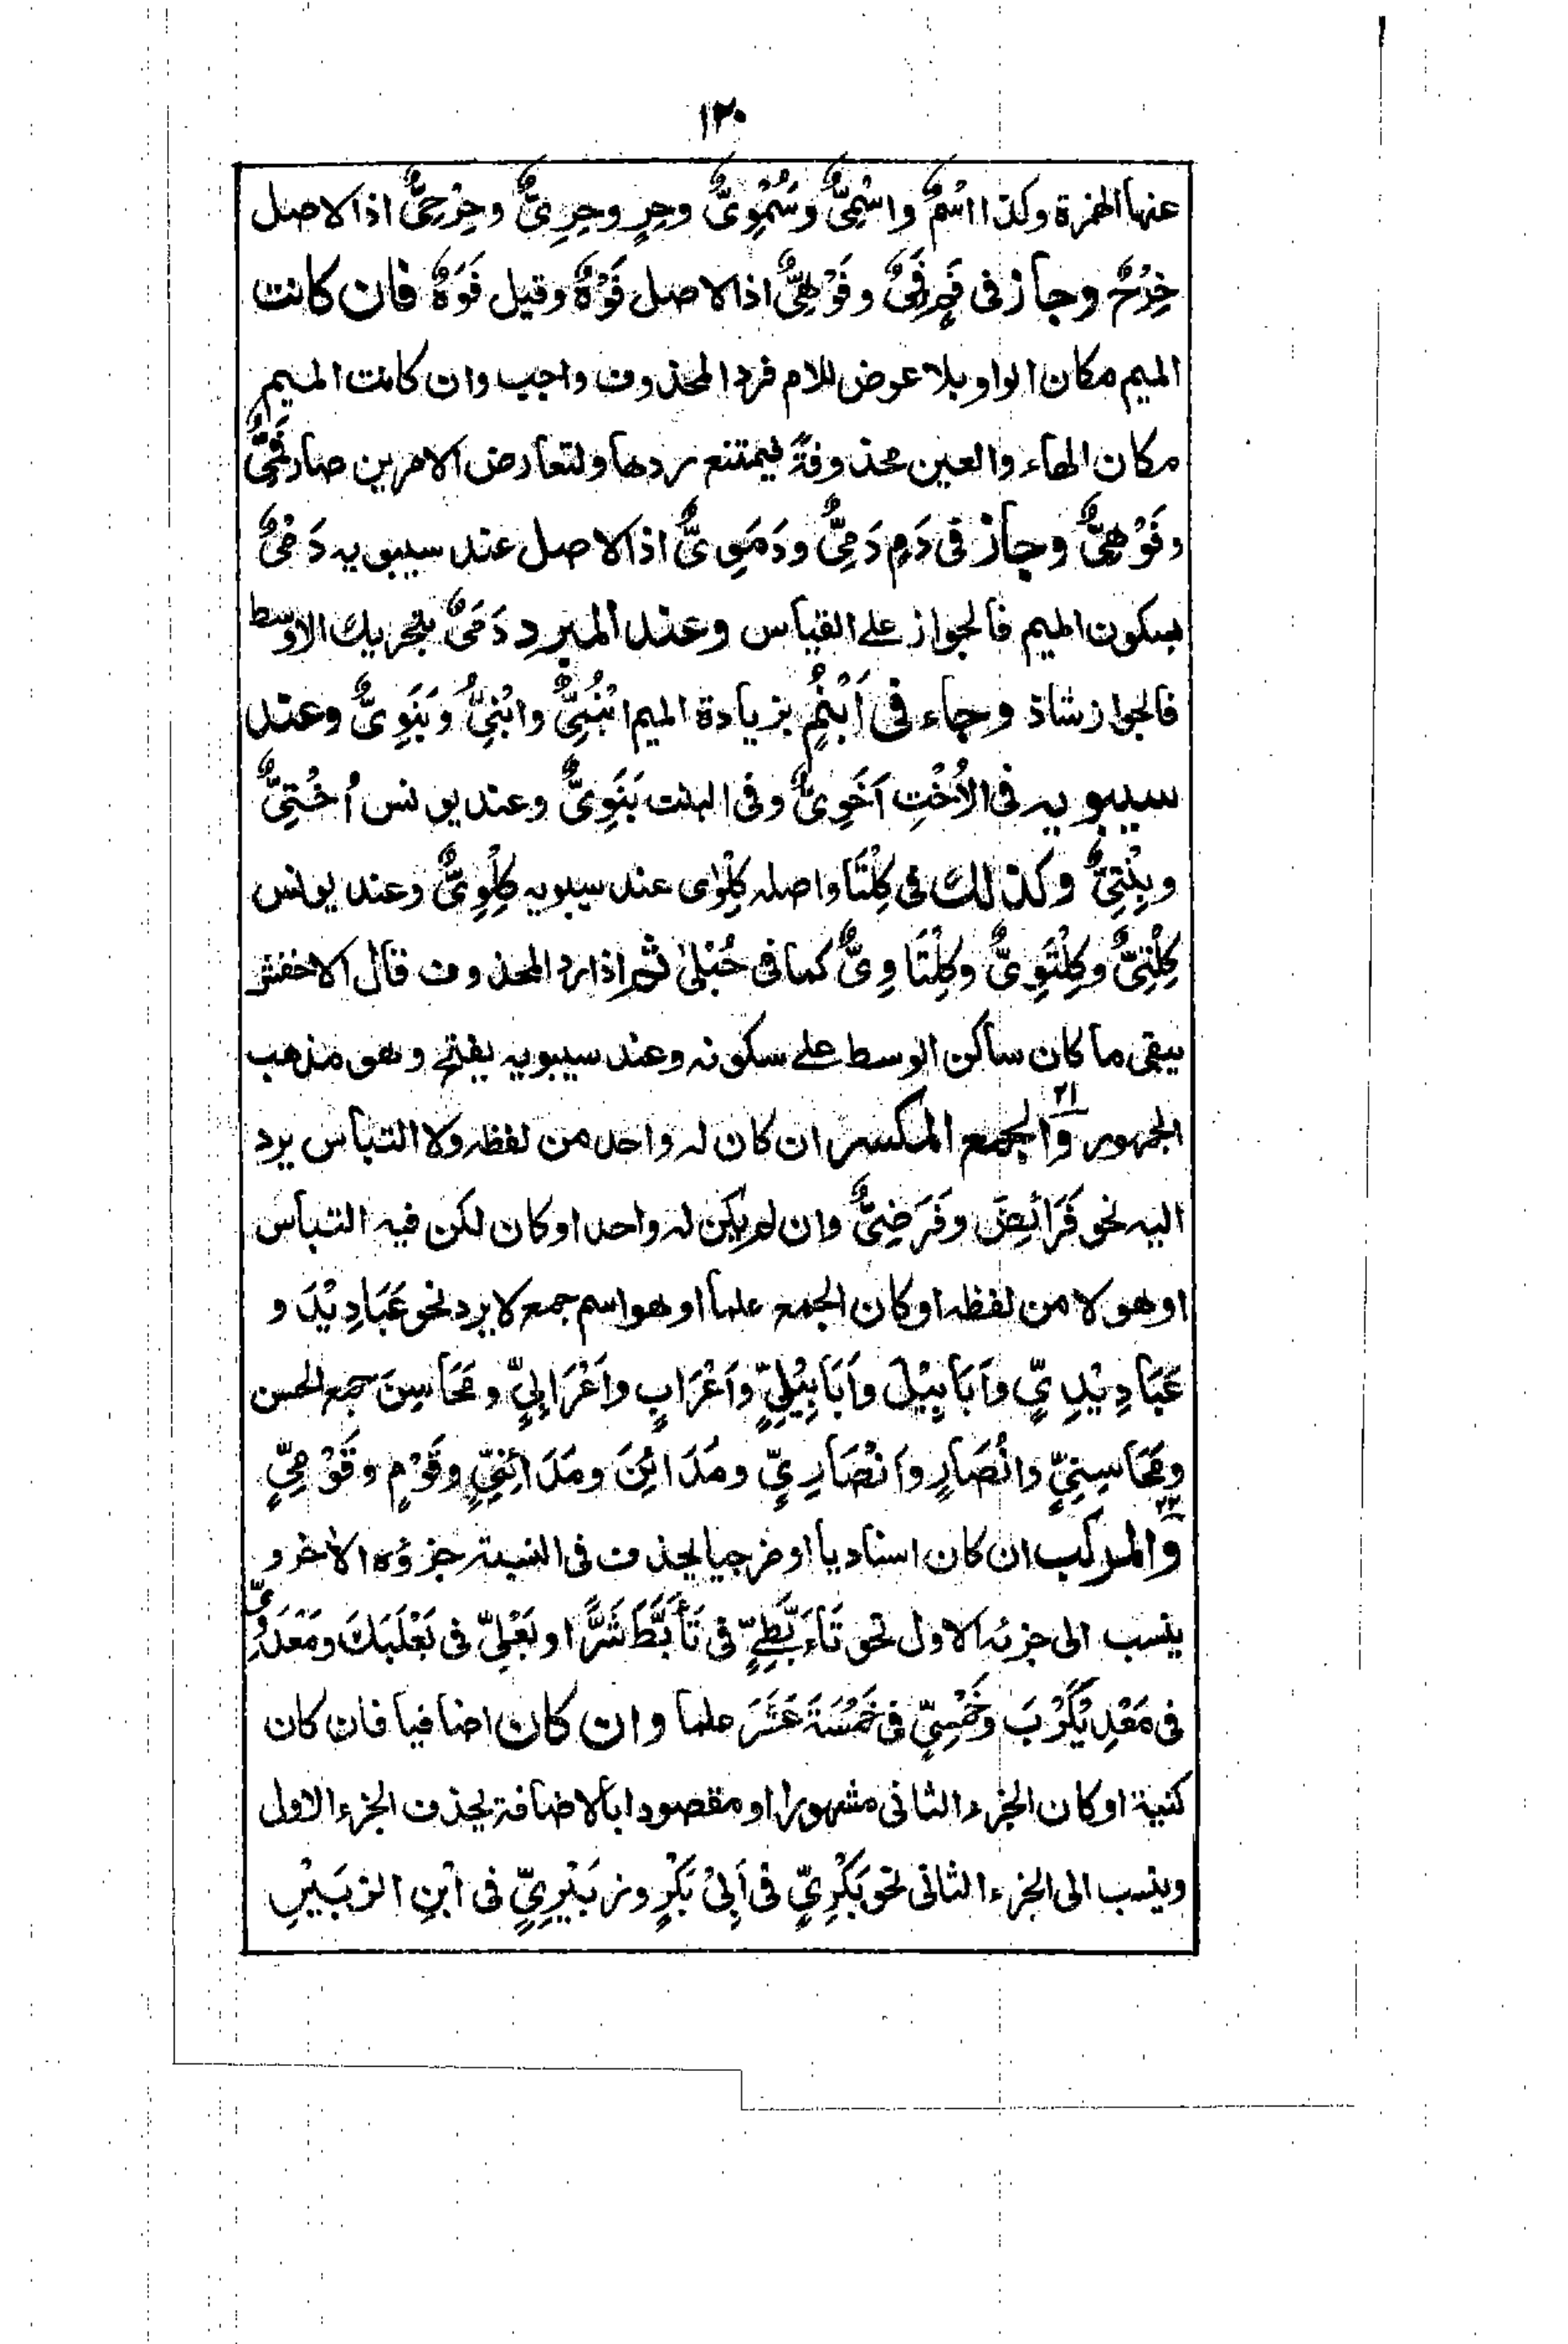 ١٢٠
عنها الهمزة وكذا اِسْمٌ واِسْمِیٌّ وسُمْوِیٌّ وحِرٍ وحِرِیٌّ وحِرْحِیٌّ اذ الاصل
حِرْحٌ وجاز فی فَمٍ فَمِیٌّ وفَوْهِیٌّ اذ الاصل فَوْهٌ وقیل فَوَهٌ فان کانت
المیم مکان الواو بلا عوض للام فرد المحذوف واجب وان کانت المیم
مکان الهاء والعین محذوفةً فیمتنع ردها ولتعارض الامرین صار فَمِیٌّ
وفَوْهِیٌّ وجاز فی دَمٍ دَمِیٌّ ودَمَوِیٌّ اذ الاصل عند سیبویه دَمْیٌ
بسکون المیم فالجواز علے القیاس وعند المبرد دَمَیٌ بتحریک الاوسط
فالجواز شاذ وجاء فی اَبْنُمٍ بزیادة المیم ابْنُمِیٌّ وابْنِیٌّ وبَنَوِیٌّ وعند
سیبویه فی الاُخْتِ اَخَوِیٌّ وفی البنت بَنَوِیٌّ وعند یونس اُخْتِیٌّ
وبِنْتِیٌّ وکذلک فی کِلْتَا واصله کِلْوٰی عند سیبویه کِلْوِیٌّ وعند یونس
کِلْتِیٌّ وکِلْتَوِیٌّ وکِلْتَاوِیٌّ کما فی حُبْلیٰ ثم اذا رد المحذوف قال الاخفش
یبقی ما کان ساکن الوسط علے سکونه وعند سیبویه یفتح وهو مذهب
الجمهور ٢١ والجمع المکسر ان کان له واحد من لفظه ولا التباس یرد
الیه نحو فَرَائِضَ وفَرَضِیٌّ وان لم یکن له واحد او کان لکن فیه التباس
او هو لا من لفظه او کان الجمع علما او هو اسم جمع لا یرد نحو عَبَادِیْدَ و
عَبَادِیْدِیٍّ واَبَابِیْلَ واَبَابِیْلِیٍّ واَعْرَابٍ واَعْرَابِیٍّ ومَحَاسِنَ جمع الحسن
ومَحَاسِنِیٍّ وانْصَارٍ واَنْصَارِیٍّ ومَدَائِنَ ومَدَائِنِیٍّ وقَوْمٍ وقَوْمِیٍّ
٢٢ والمرکب ان کان اسنادیا او مزجیا یحذف فی النسبة جزؤه الاٰخر و
ینسب الی جزئه الاول نحو تَاَبَّطِیٍّ فی تَأَبَّطَ شَرًّا او بَعْلِیٍّ فی بَعْلَبَكَ ومَعْدِیٍّ
فی مَعْدِیْکَرْبَ وخَمْسِیٍّ فی خَمْسَةَ عَشَرَ علما وان کان اضافیا فان کان
کنیة او کان الجزء الثانی مشهورا او مقصودا بالاضافة یحذف الجزء الاول
وینسب الی الجزء الثانی نحو بَکْرِیٍّ فی اَبِیْ بَکْرٍ وزبَیْرِیٍّ فی ابْنِ الزبَیْرِ